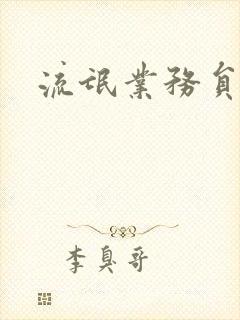 流氓業務員
李臭哥